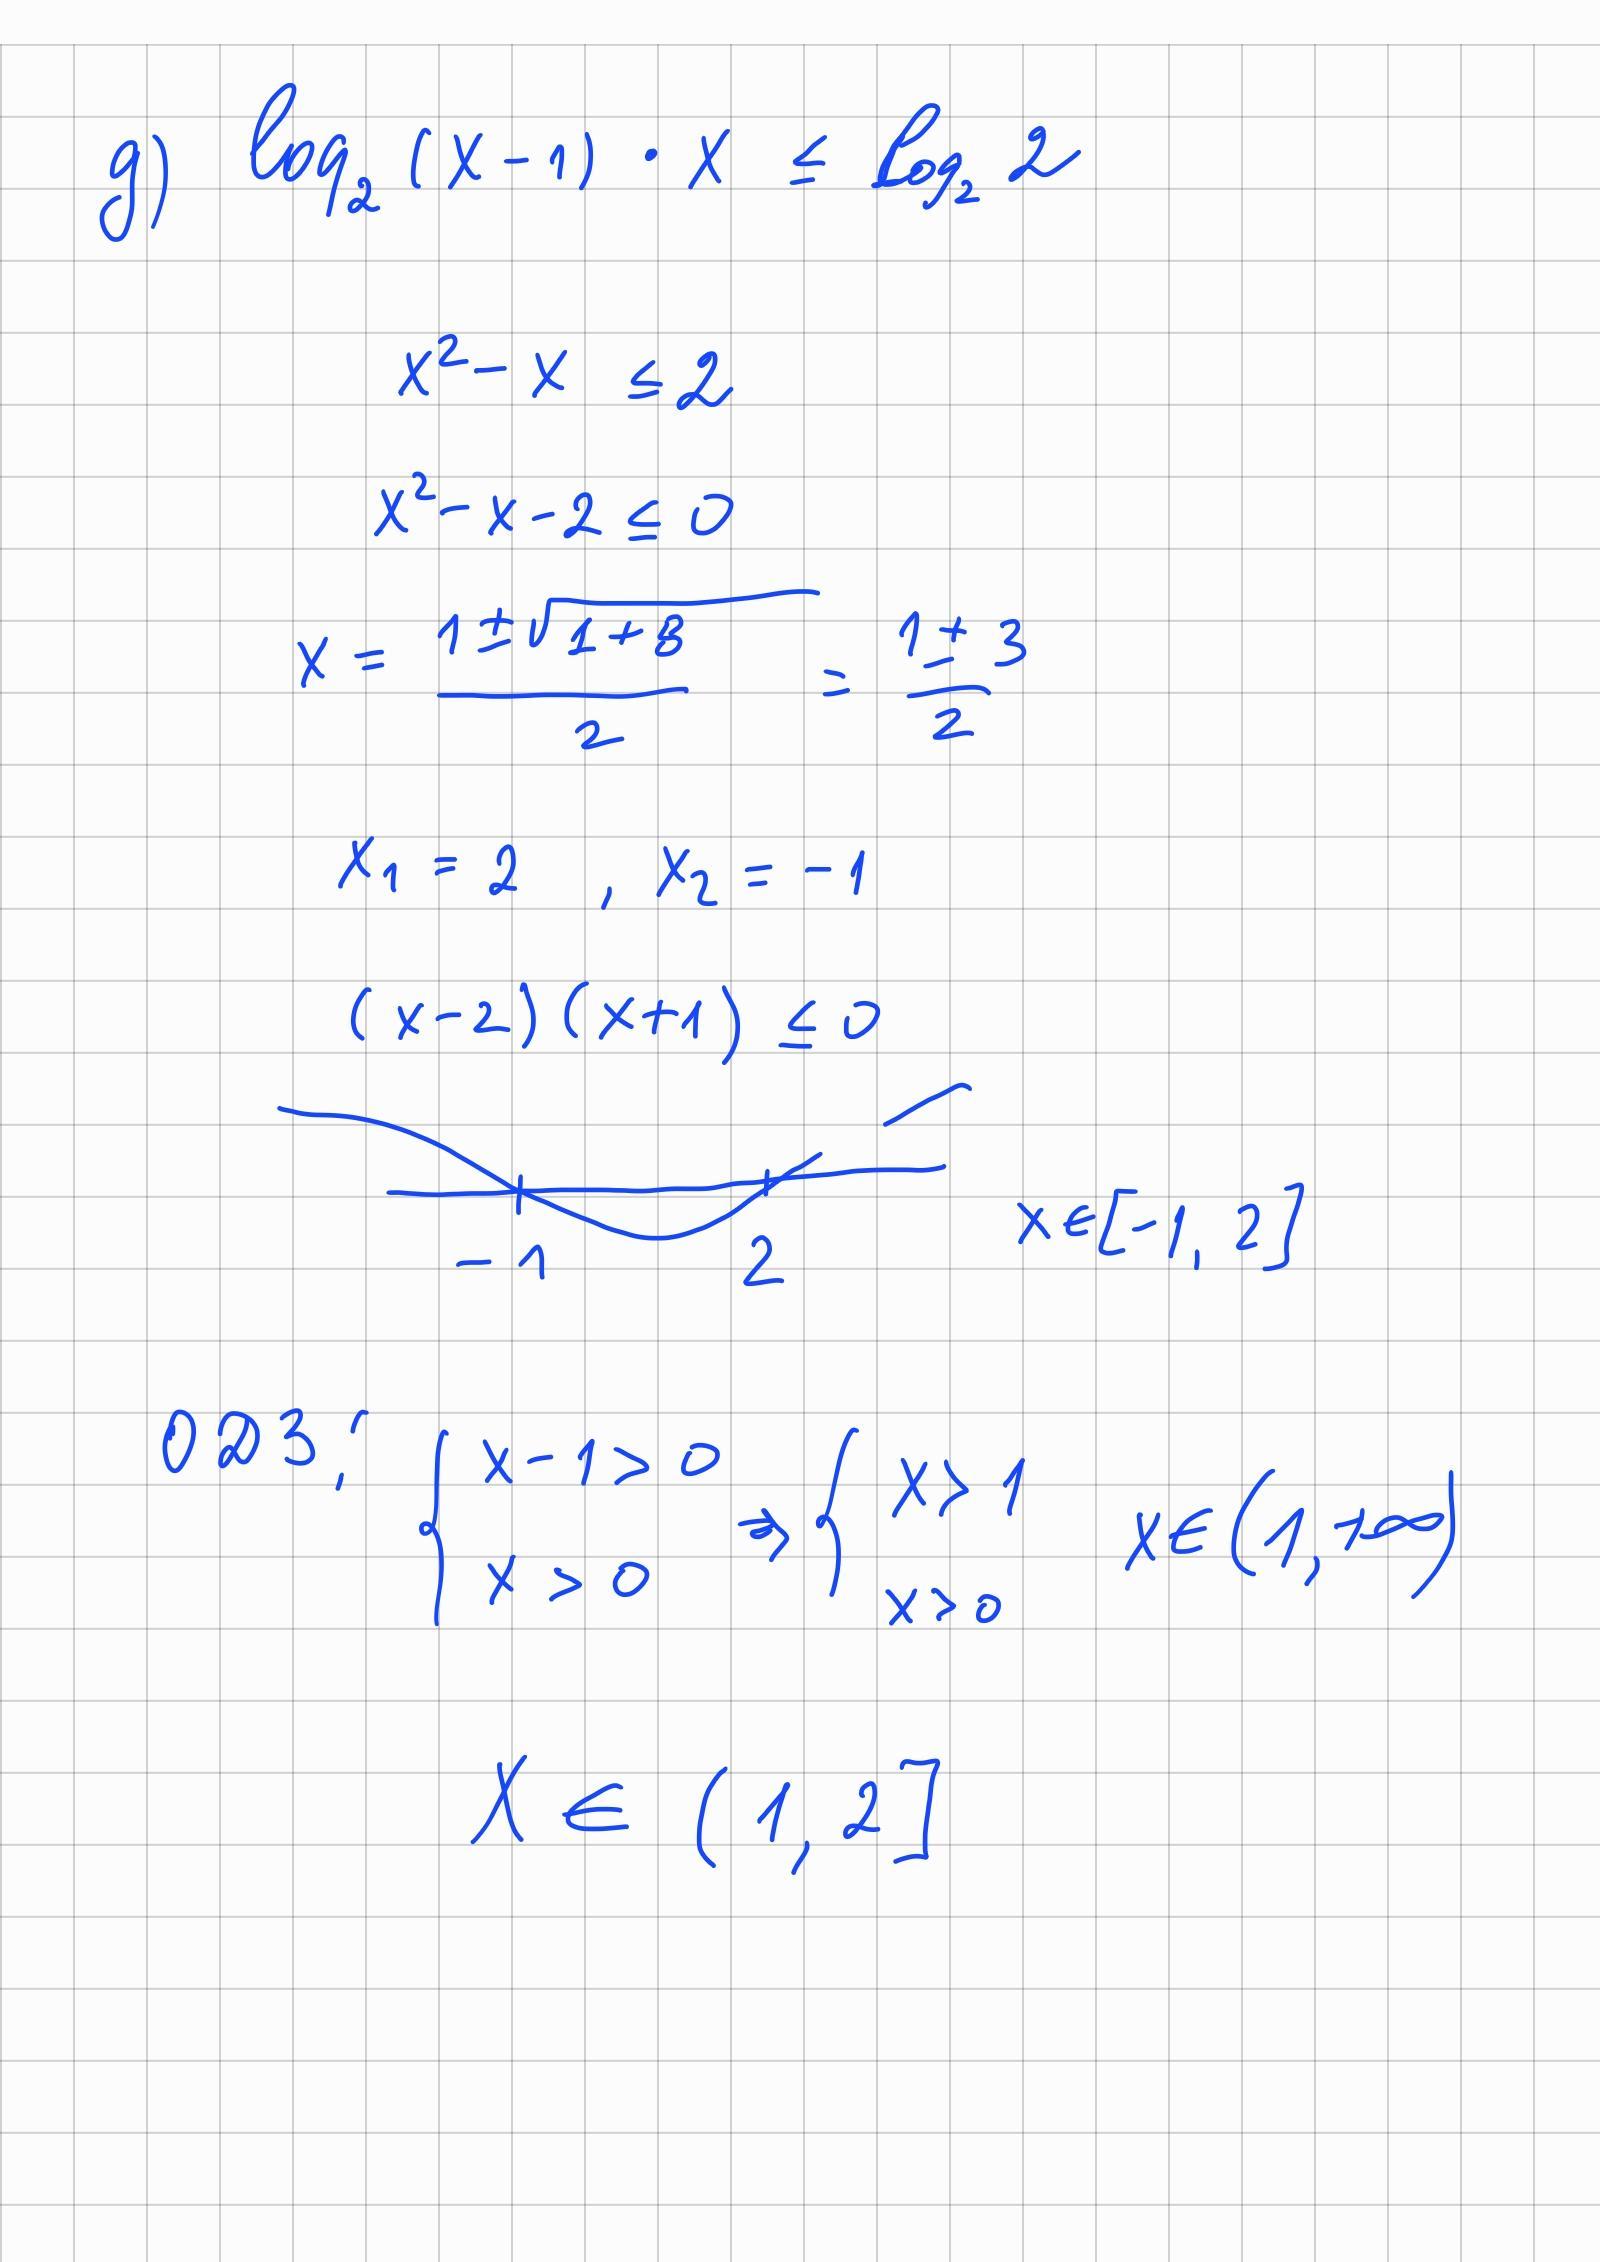 g) log₂ (x-1) · x ≤ log₂ 2
x² - x ≤ 2
x² - x - 2 ≤ 0
x = (1 ± √(1+8)) / 2 = (1 ± 3) / 2
x₁ = 2 , x₂ = -1
(x-2)(x+1) ≤ 0
-1 2 x ∈ [-1, 2]
ОДЗ: { x-1 > 0 ⇒ { x > 1 x ∈ (1, +∞)
x > 0 x > 0
x ∈ (1, 2]